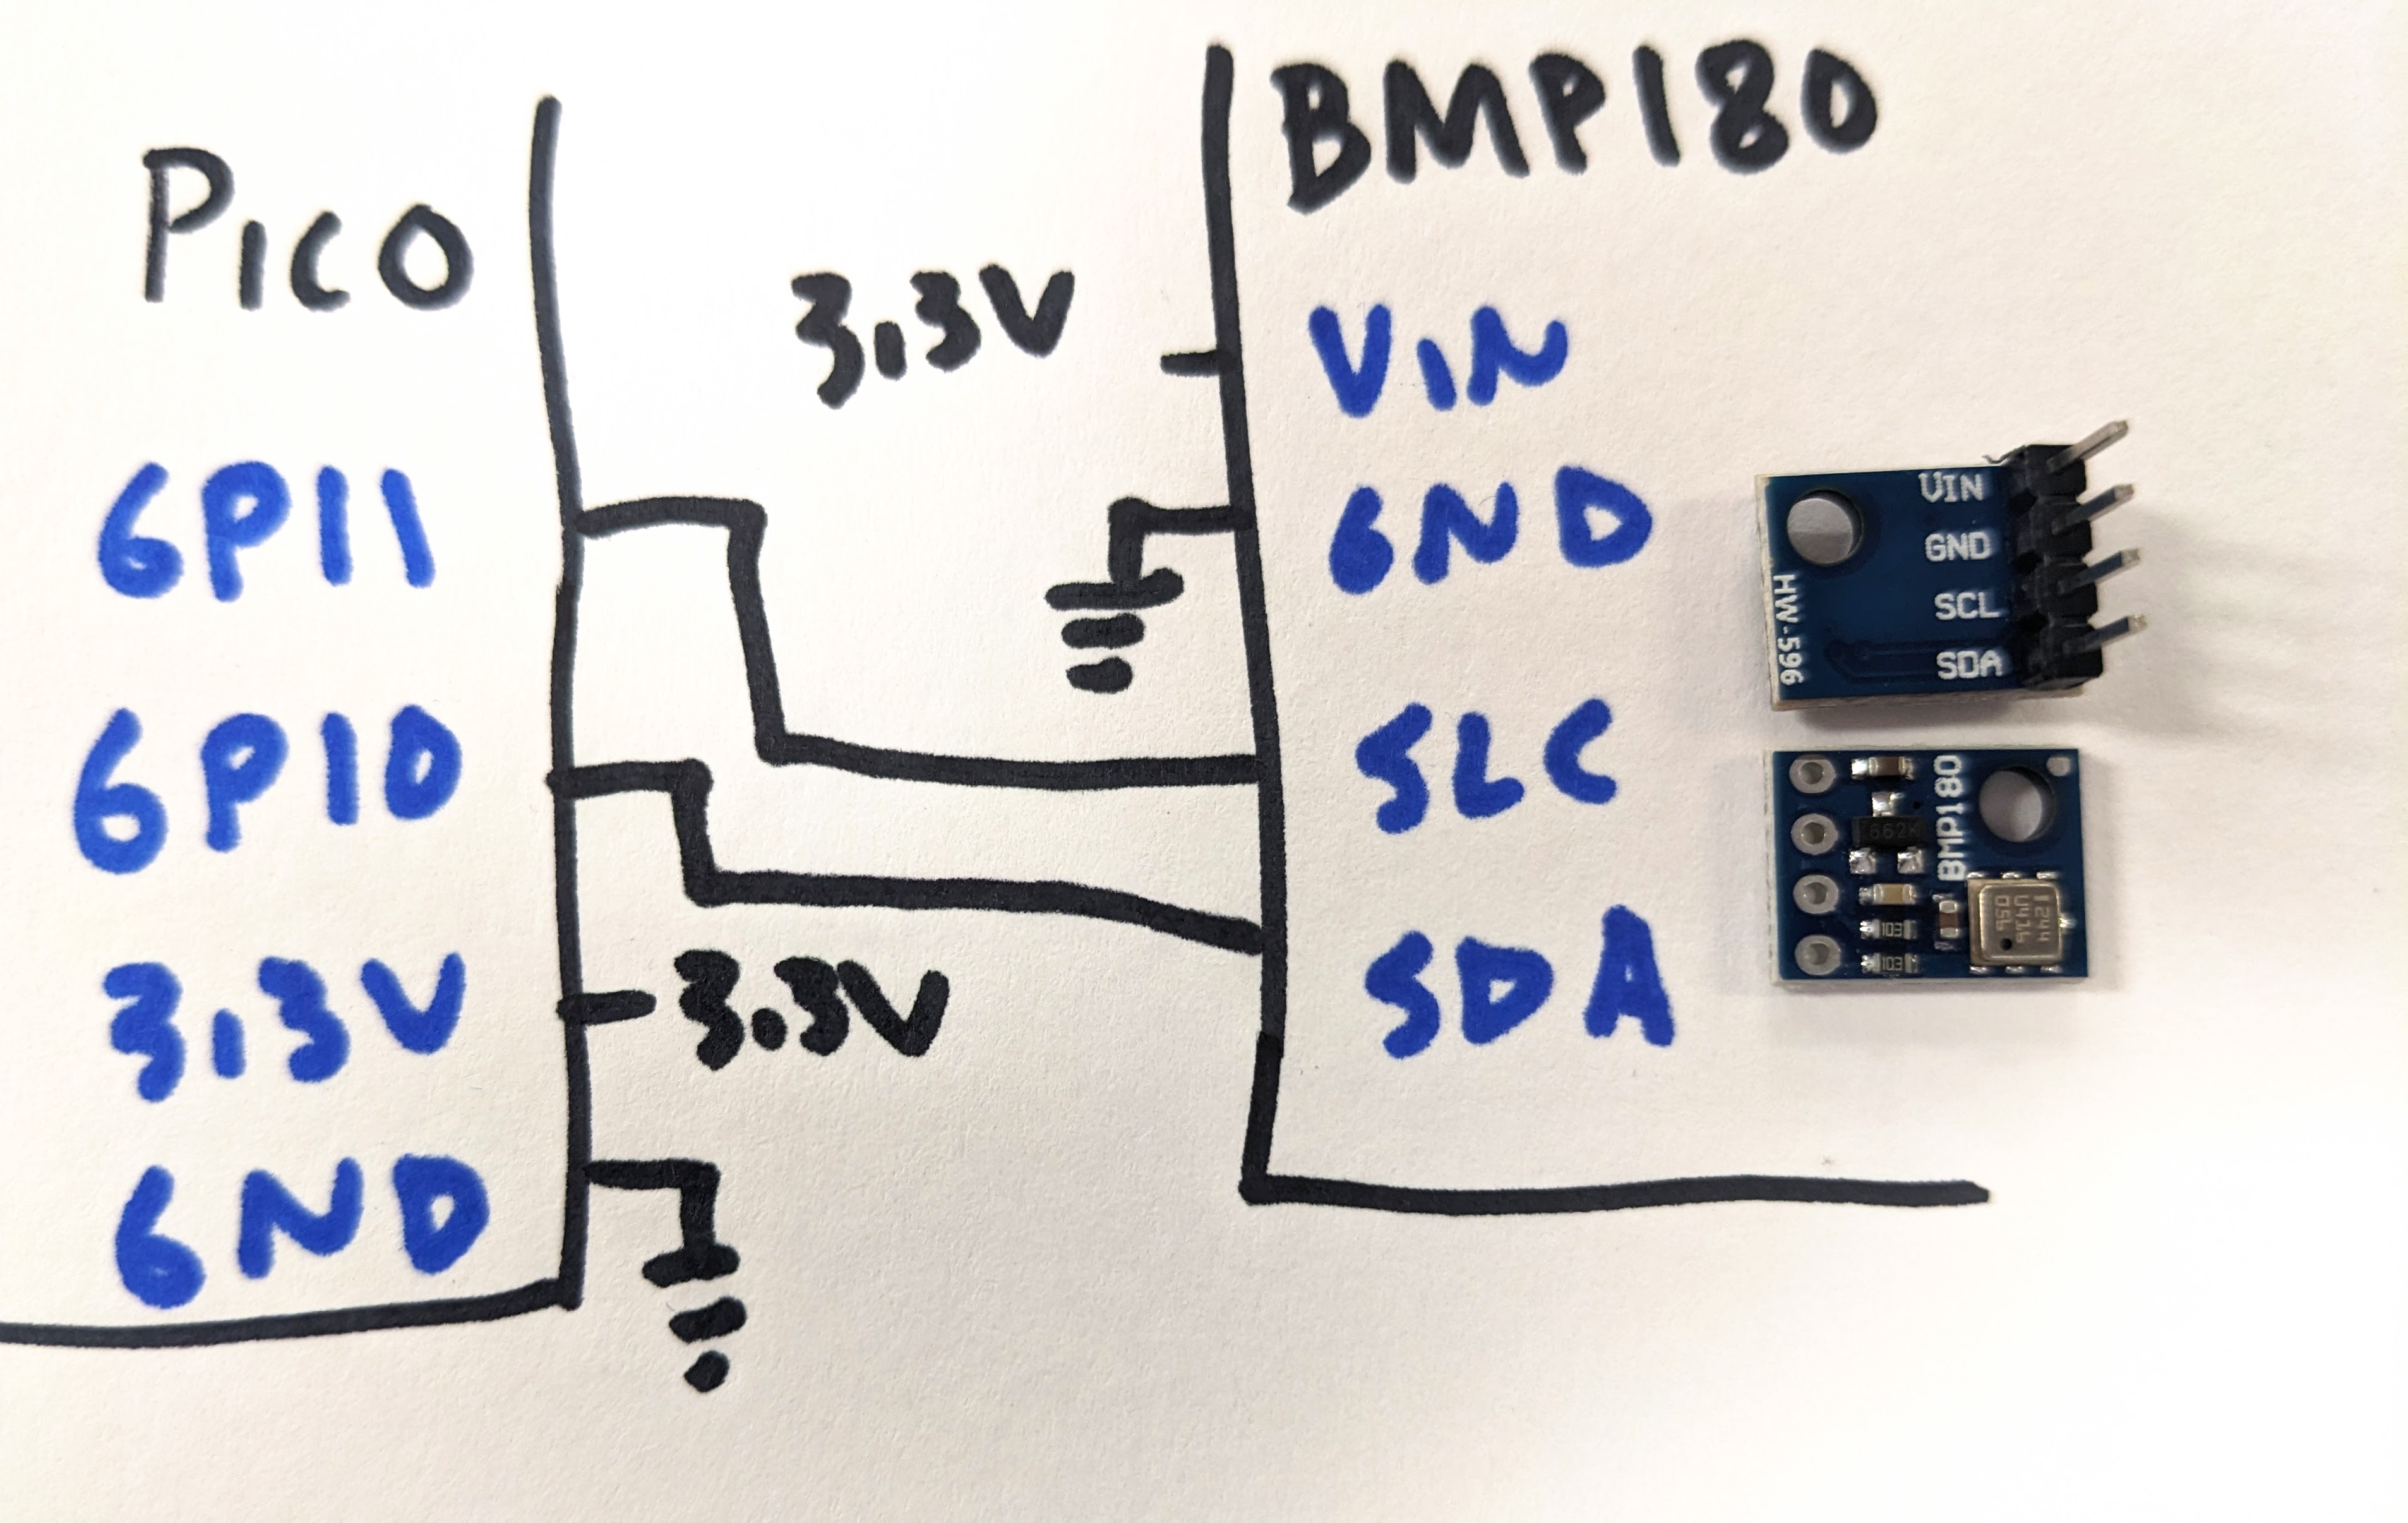 Pico
GP11
GP10
3.3V
GND
3.3V
3.3V
BMP180
VIN
GND
SLC
SDA
VIN
GND
SCL
SDA
HW-596
BMP180
662K
103
103
1244
U436